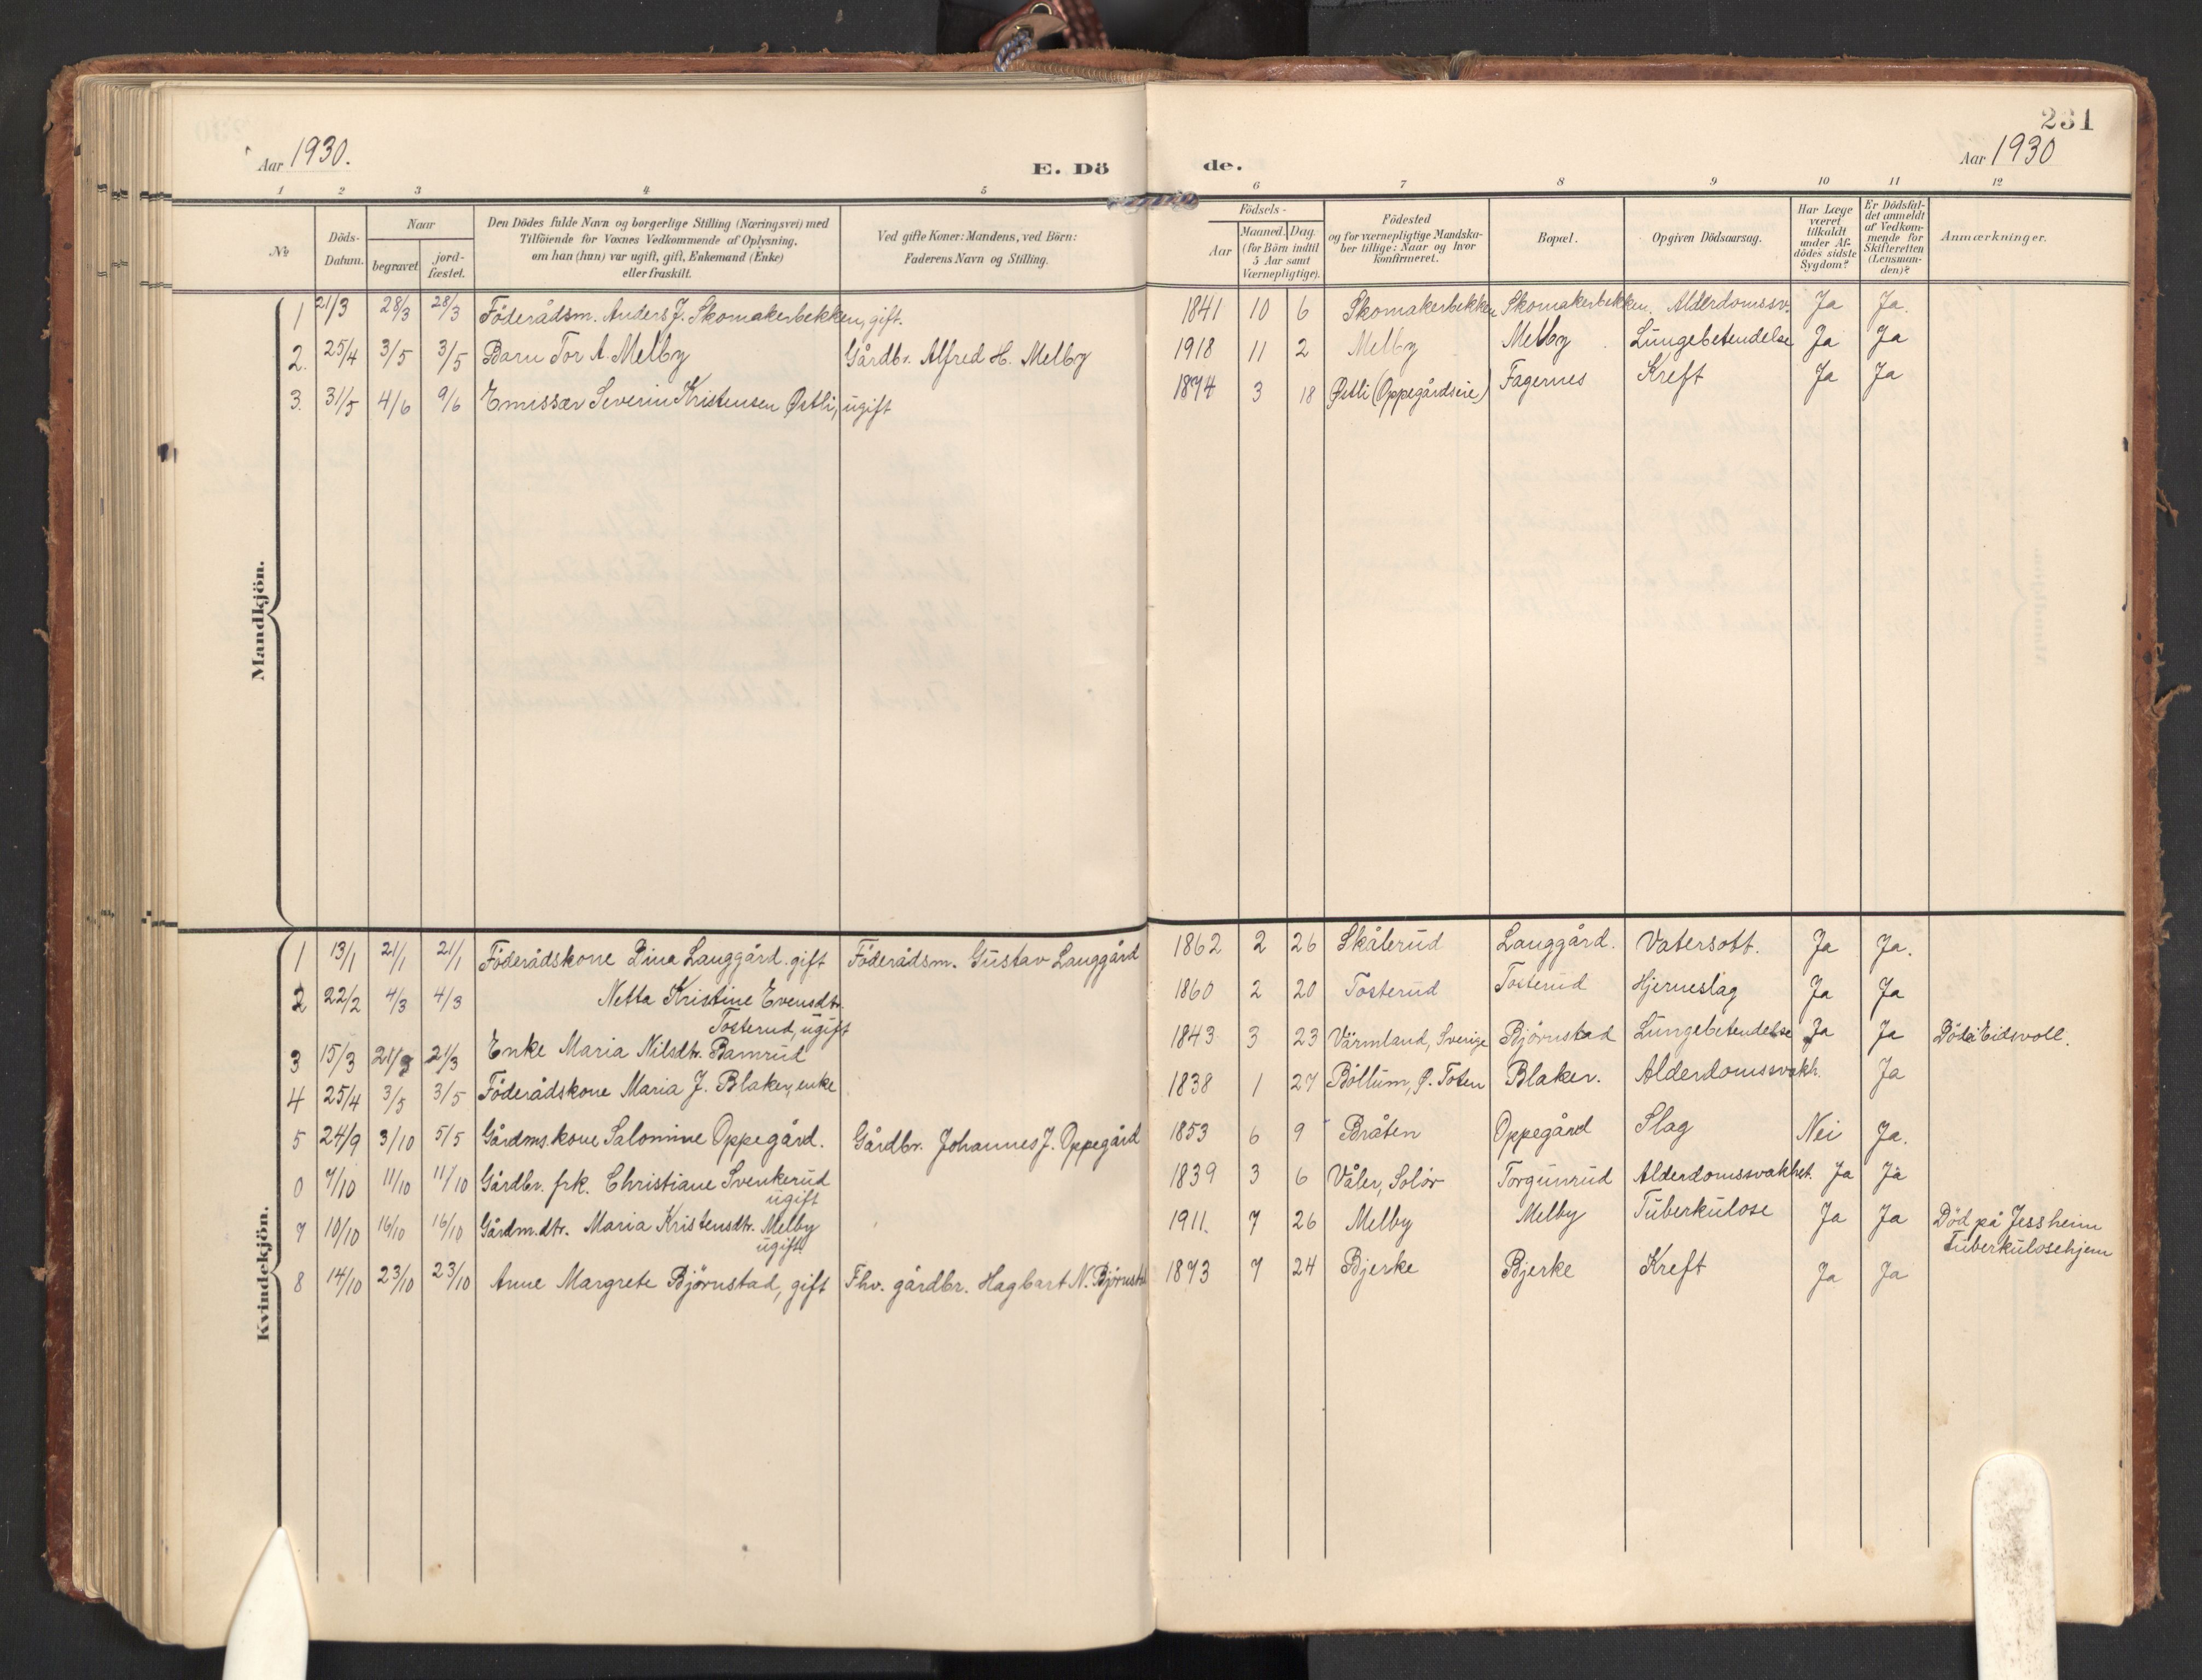 231
Aar 1930.
E. Dö de.
Aar 1930
1 2 3 4 5 6 7 8 9 10 11 12
№
Döds-
Datum.
Naar
begravet.
jord-
fæstet.
Den Dödes fulde Navn og borgerlige Stilling (Næringsvei) med
Tilföiende for Voxnes Vedkommende af Oplysning,
om han (hun) var ugift, gift, Enkemand (Enke)
eller fraskilt.
Ved gifte Koner: Mandens, ved Börn:
Faderens Navn og Stilling.
Födsels-
Aar
Maaned. Dag.
(for Börn indtil
5 Aar samt
Værnepligtige).
Födested
og for værnepligtige Mandska-
ber tillige: Naar og hvor
konfirmeret.
Bopæl.
Opgiven Dödsaarsag.
Har Læge
været
tilkaldt
under Af-
dödes sidste
Sygdom?
Er Dödsfal-
det anmeldt
af Vedkom-
mende for
Skifteretten
(Lensman-
den)?
Anmærkninger.
Mandkjön.
1 21/3 28/3 28/3 Föderådsm. Anders J. Skomakerbekken, gift. 1841 10 6 Skomakerbekken Skomakerbekken. Alderdomssv. Ja Ja.
2. 25/4 3/5 3/5 Barn Tor A. Melby Gårdbr. Alfred H. Melby 1918 11 2 Melby Melby Lungebetendelse Ja Ja
3. 31/5 4/6 9/6 Emissær Severin Kristensen Østli, ugift 1894 3 18 Østli (Oppegårdseie) Fagernes Kreft Ja Ja
Kvindekjön.
1 13/1 21/1 21/1 Föderådskone Lina Langgård. gift Föderådsm. Gustav Langgård 1862 2 26 Skålerud Langgård. Vatersott. Ja Ja.
2 22/2 4/3 4/3 Netta Kristine Evensdtr.
Tosterud, ugift 1860 2 20 Tosterud Tosterud Hjerneslag Ja Ja
3 15/3 21/3 21/3 Enke Maria Nilsdtr. Bamrud 1843 3 23 Värmland, Sverige Björnstad Lungebetendelse Ja Ja Död i Eidsvoll.
4 25/4 3/5 3/5 Föderådskone Maria J. Blaker, enke 1838 1 27 Böllum, Ø. Toten Blaker. Alderdomssvakh. Ja
5 24/9 3/10 5/5 Gårdms.kone Salomine Oppegård. Gårdbr. Johannes J. Oppegård 1853 6 9 Bråten Oppegård Slag Nei Ja.
0 7/10 11/10 11/10 Gårdbr. frk. Christiane Svenkerud
ugift 1839 3 6 Våler, Solör Torgunrud Alderdomssvakhet. Ja Ja
7 10/10 16/10 16/10 Gårdm.dtr. Maria Kristensdtr. Melby
ugift. 1911. 7 26 Melby Melby Tuberkulose Ja Ja Död på Jessheim
Tuberkulosehjem
8 14/10 23/10 23/10 Anne Margrete Björnstad, gift Fhv. gårdbr. Hagbart N. Björnstd 1873 7 24 Bjerke Bjerke Kreft Ja Ja